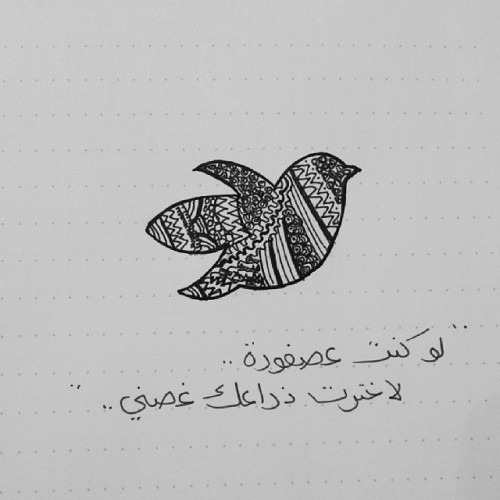 "لو كنت عصفورة ..
لاخترت ذراعك غصني .. "